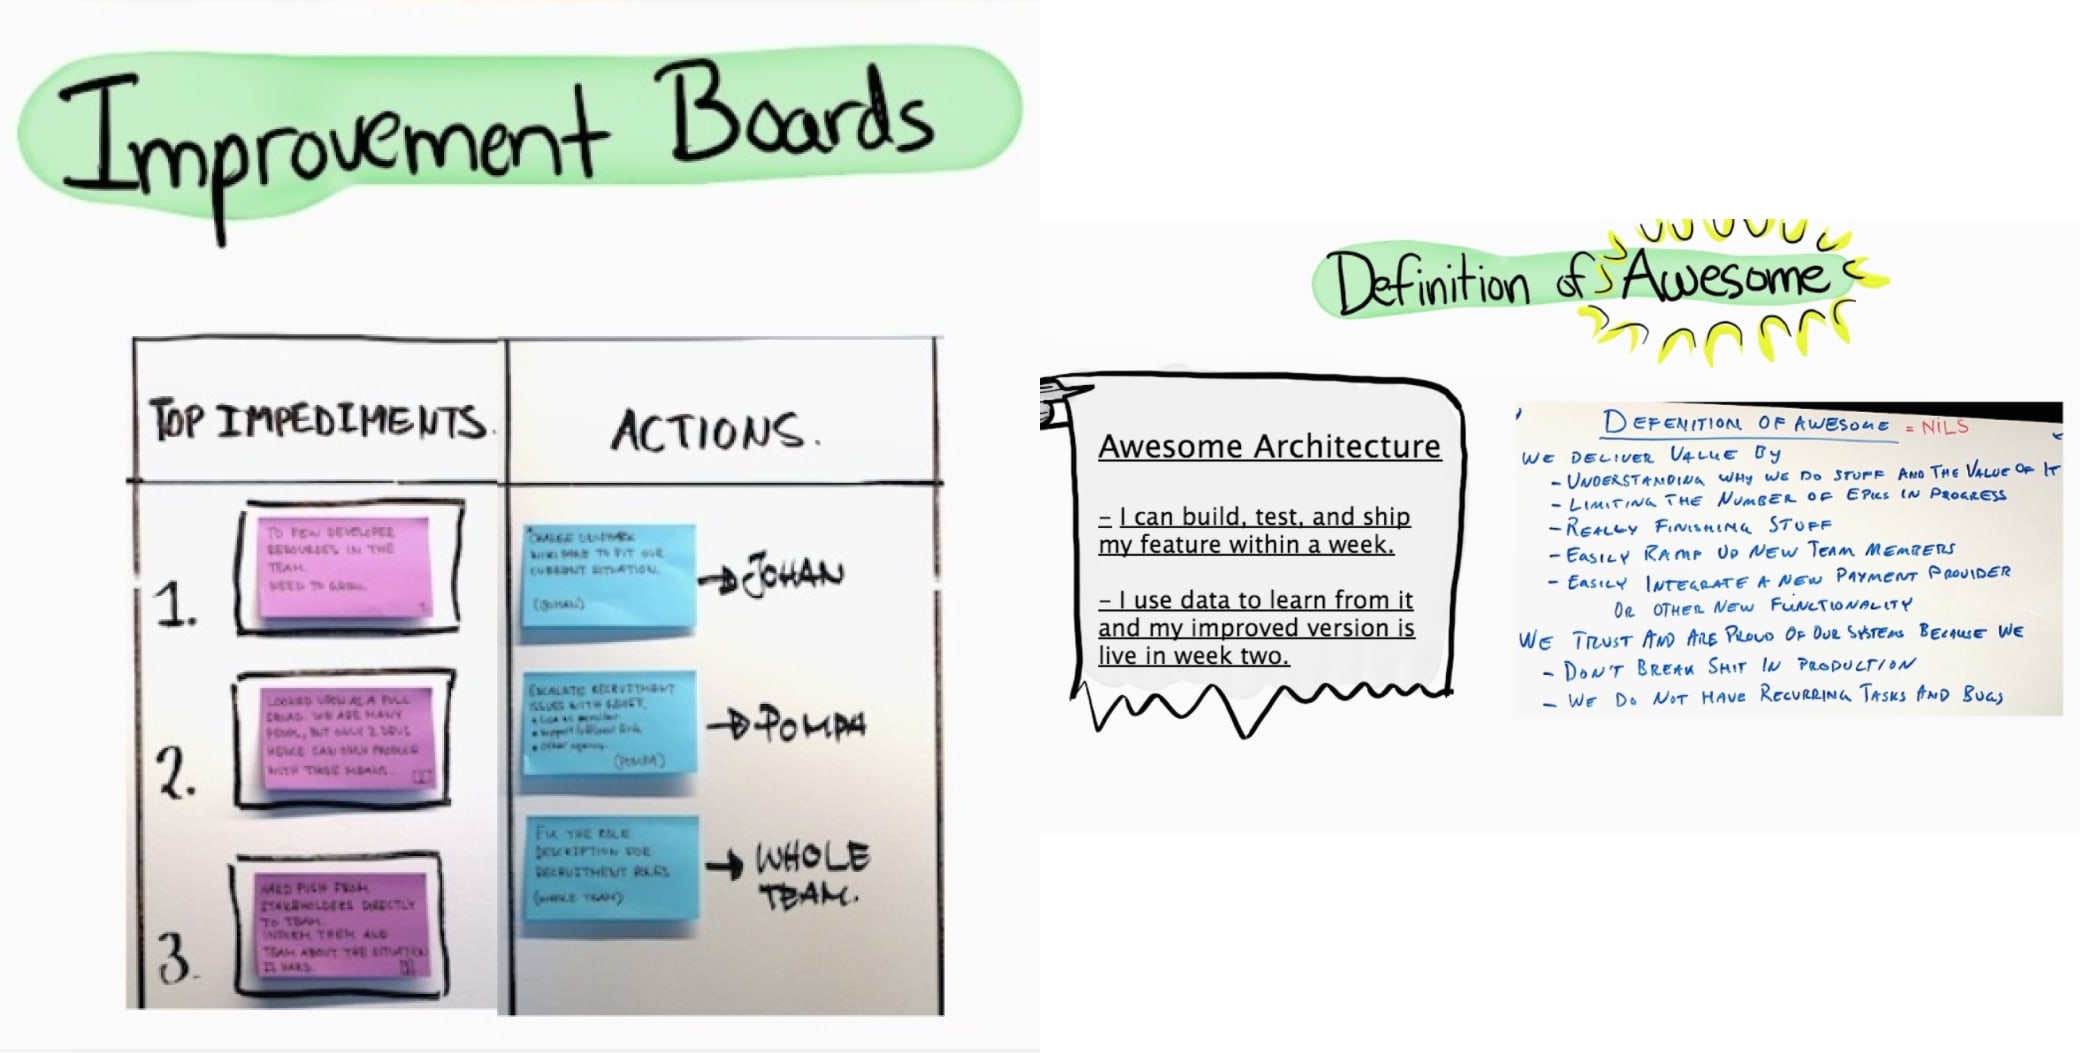 Improvement Boards
TOP IMPEDIMENTS.
ACTIONS.
1.
TO FEW DEVELOPER
RESOURCES IN THE
TEAM.
NEED TO GROW.
1
2.
LOOKED UPON AS A FULL
SQUAD. WE ARE MANY
PEOPL, BUT ONLY 2 DEVS
HENCE CAN ONLY PRODUCE
WITH THOSE MEANS.
2
3.
HARD PUSH FROM
STAKEHOLDERS DIRECTLY
TO TEAM.
INFORM THEM AND
TEAM ABOUT THE SITUATION
IS HARD.
3
CHANGE
TO FIT OUR
CURRENT SITUATION.
(JOHAN)
→ JOHAN
ESCALATE RECRUITMENT
ISSUES WITH
(POMPA)
→ POMPA
FIX THE ROLE
DESCRIPTION FOR
RECRUITMENT ROLES
(WHOLE TEAM)
→ WHOLE
TEAM.
Definition of Awesome
Awesome Architecture
– I can build, test, and ship
my feature within a week.
– I use data to learn from it
and my improved version is
live in week two.
DEFENITION OF AWESOME = NILS
WE DELIVER VALUE BY
- UNDERSTANDING WHY WE DO STUFF AND THE VALUE OF IT
- LIMITING THE NUMBER OF EPICS IN PROGRESS
- REALLY FINISHING STUFF
- EASILY RAMP UP NEW TEAM MEMBERS
- EASILY INTEGRATE A NEW PAYMENT PROVIDER
OR OTHER NEW FUNCTIONALITY
WE TRUST AND ARE PROUD OF OUR SYSTEMS BECAUSE WE
- DON'T BREAK SHIT IN PRODUCTION
- WE DO NOT HAVE RECURRING TASKS AND BUGS